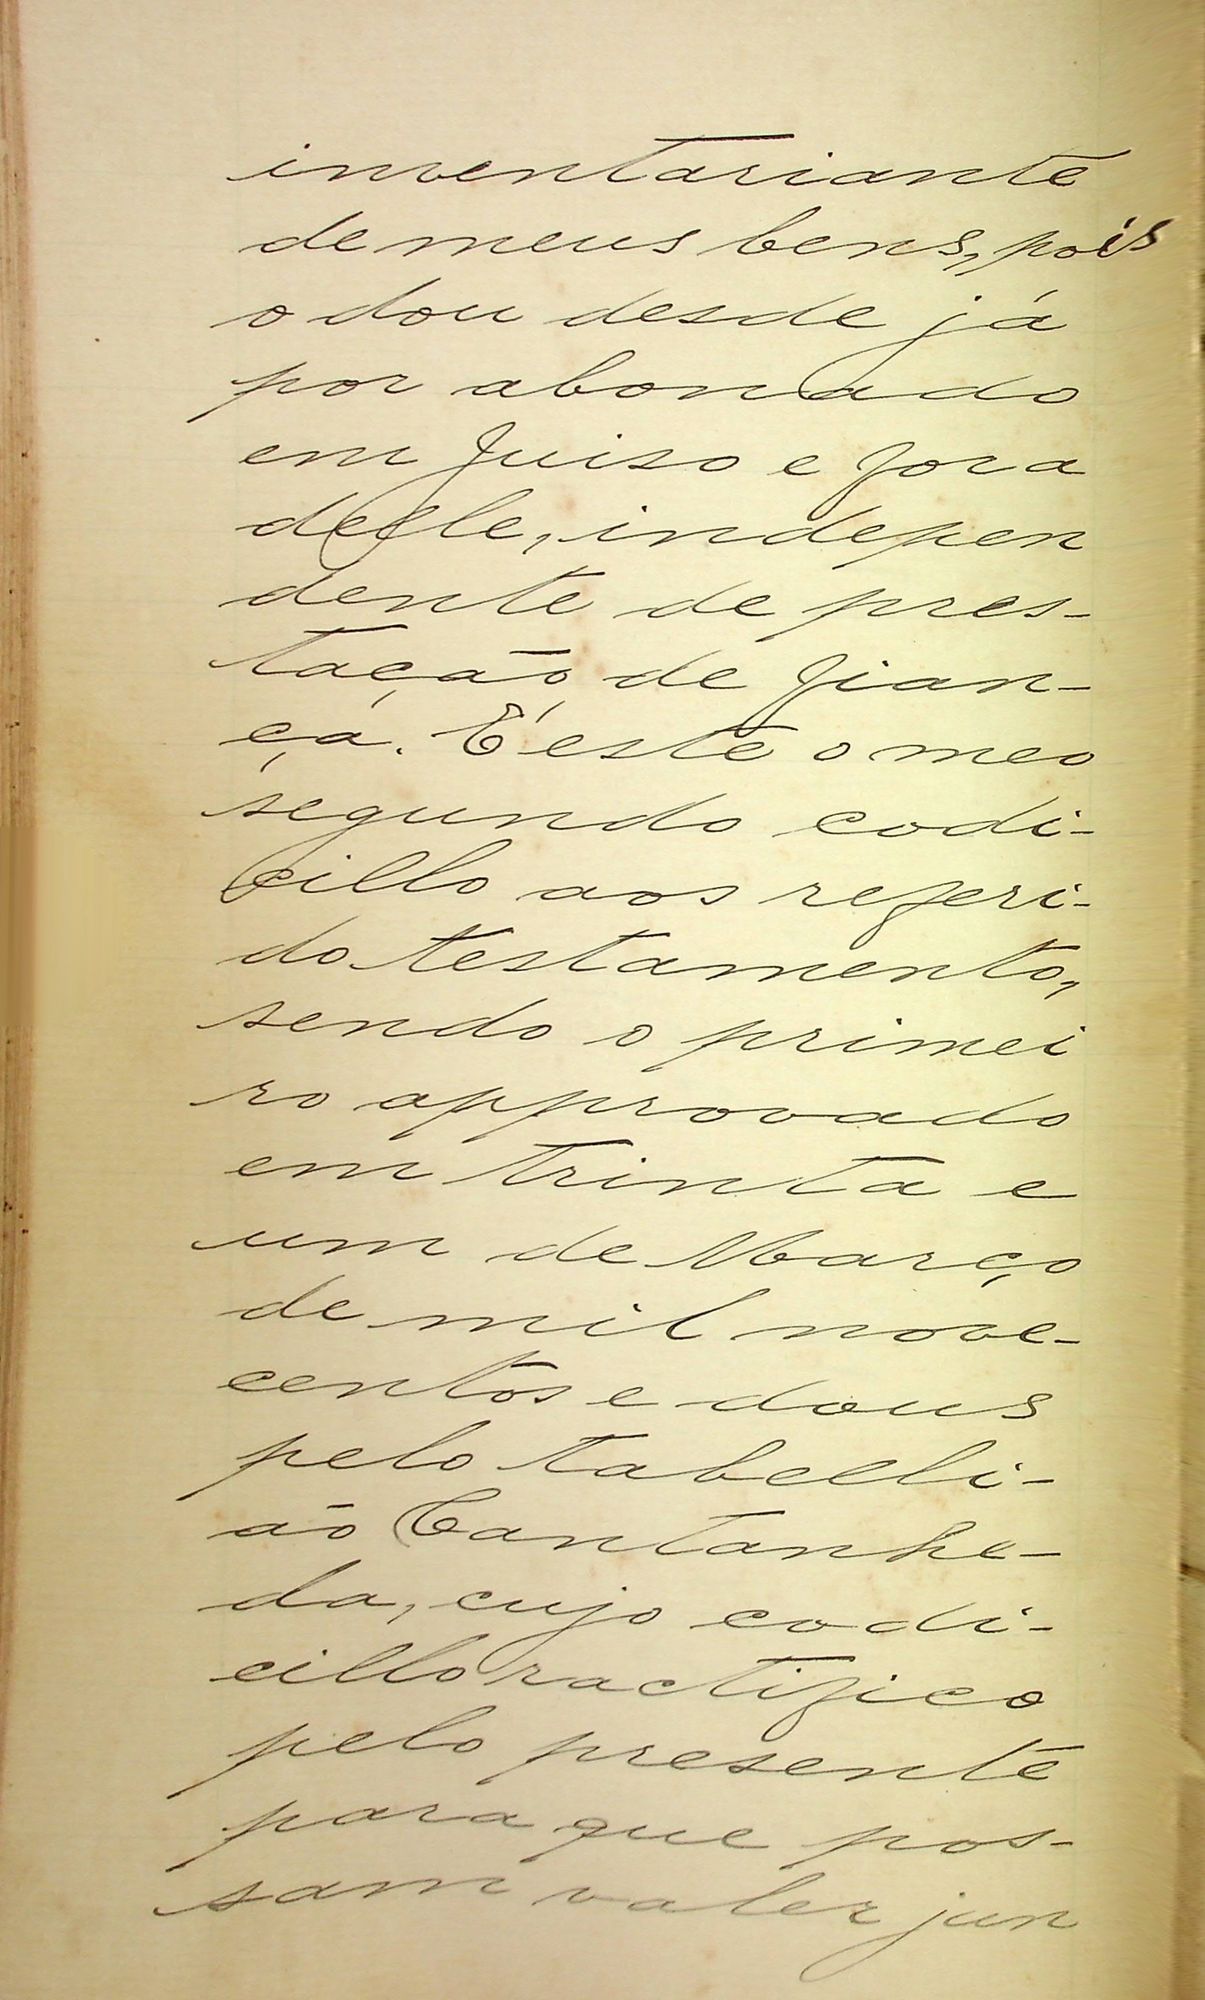 inventariante
de meus bens, pois
o dou desde já
por abonado
em Juiso e fora
delle, indepen
dente de pres-
tação de fian-
ça. É este o meo
segundo codi-
cillo aos referi-
do testamento,
sendo o primei
ro approvado
em trinta e
um de Março
de mil nove-
centos e dous
pelo tabelli-
ão Cantanhe-
da, cujo codi-
cillo ractifico
pelo presente
para que pos-
sam valer jun